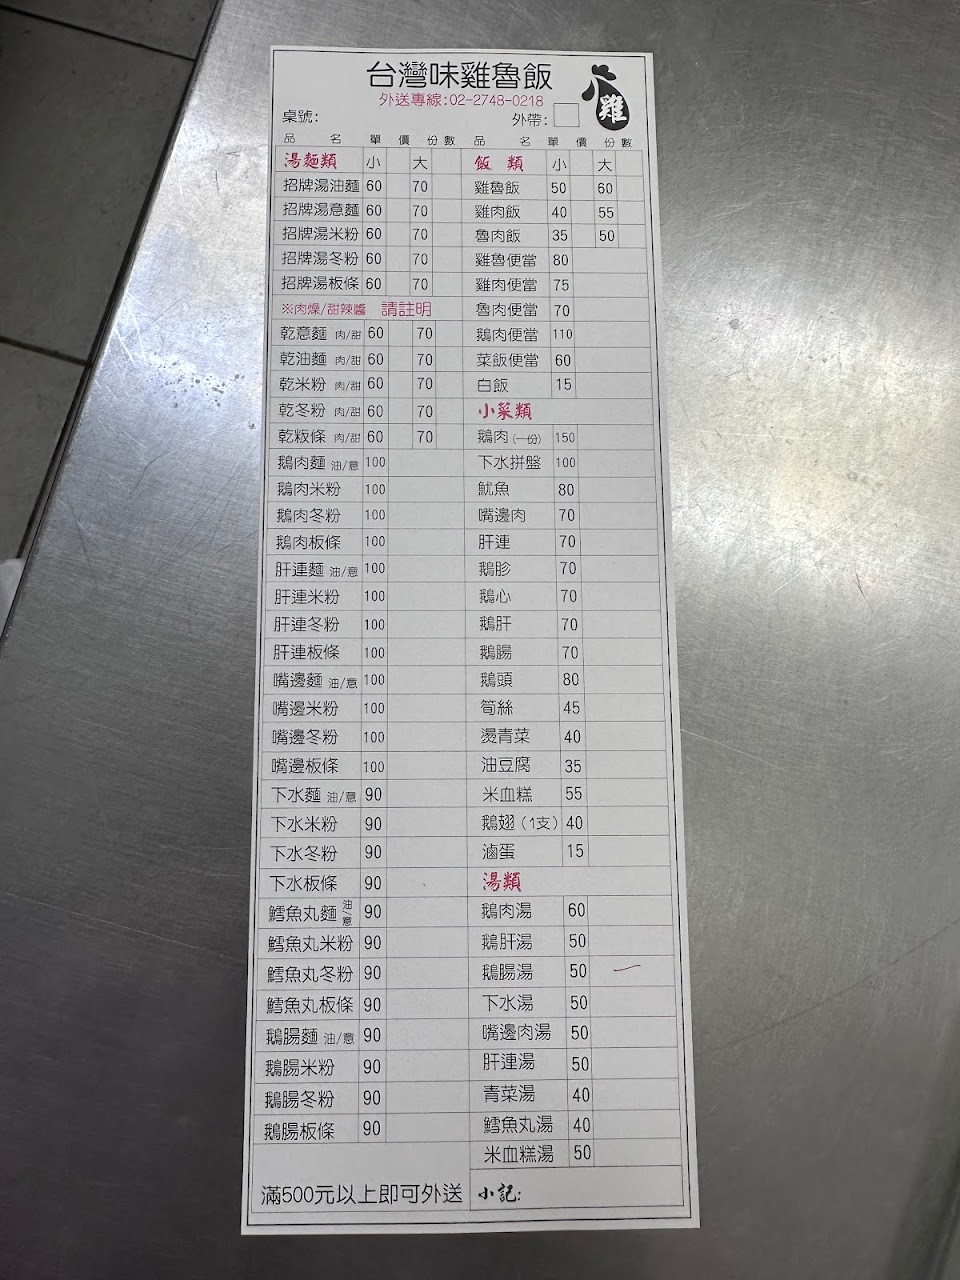 台灣味雞魯飯
外送專線:02-2748-0218
雞
桌號:
外帶:
品名 單價 份數 品名 單價 份數
湯麵類 小 大
招牌湯油麵 60 70
招牌湯意麵 60 70
招牌湯米粉 60 70
招牌湯冬粉 60 70
招牌湯板條 60 70
※肉燥/甜辣醬 請註明
乾意麵 肉/甜 60 70
乾油麵 肉/甜 60 70
乾米粉 肉/甜 60 70
乾冬粉 肉/甜 60 70
乾粄條 肉/甜 60 70
鵝肉麵 油/意 100
鵝肉米粉 100
鵝肉冬粉 100
鵝肉板條 100
肝連麵 油/意 100
肝連米粉 100
肝連冬粉 100
肝連板條 100
嘴邊麵 油/意 100
嘴邊米粉 100
嘴邊冬粉 100
嘴邊板條 100
下水麵 油/意 90
下水米粉 90
下水冬粉 90
下水板條 90
鱈魚丸麵 油/意 90
鱈魚丸米粉 90
鱈魚丸冬粉 90
鱈魚丸板條 90
鵝腸麵 油/意 90
鵝腸米粉 90
鵝腸冬粉 90
鵝腸板條 90
滿500元以上即可外送
飯類 小 大
雞魯飯 50 60
雞肉飯 40 55
魯肉飯 35 50
雞魯便當 80
雞肉便當 75
魯肉便當 70
鵝肉便當 110
菜飯便當 60
白飯 15
小菜類
鵝肉(一份) 150
下水拼盤 100
魷魚 80
嘴邊肉 70
肝連 70
鵝胗 70
鵝心 70
鵝肝 70
鵝腸 70
鵝頭 80
筍絲 45
燙青菜 40
油豆腐 35
米血糕 55
鵝翅(1支) 40
滷蛋 15
湯類
鵝肉湯 60
鵝肝湯 50
鵝腸湯 50 一
下水湯 50
嘴邊肉湯 50
肝連湯 50
青菜湯 40
鱈魚丸湯 40
米血糕湯 50
小記: